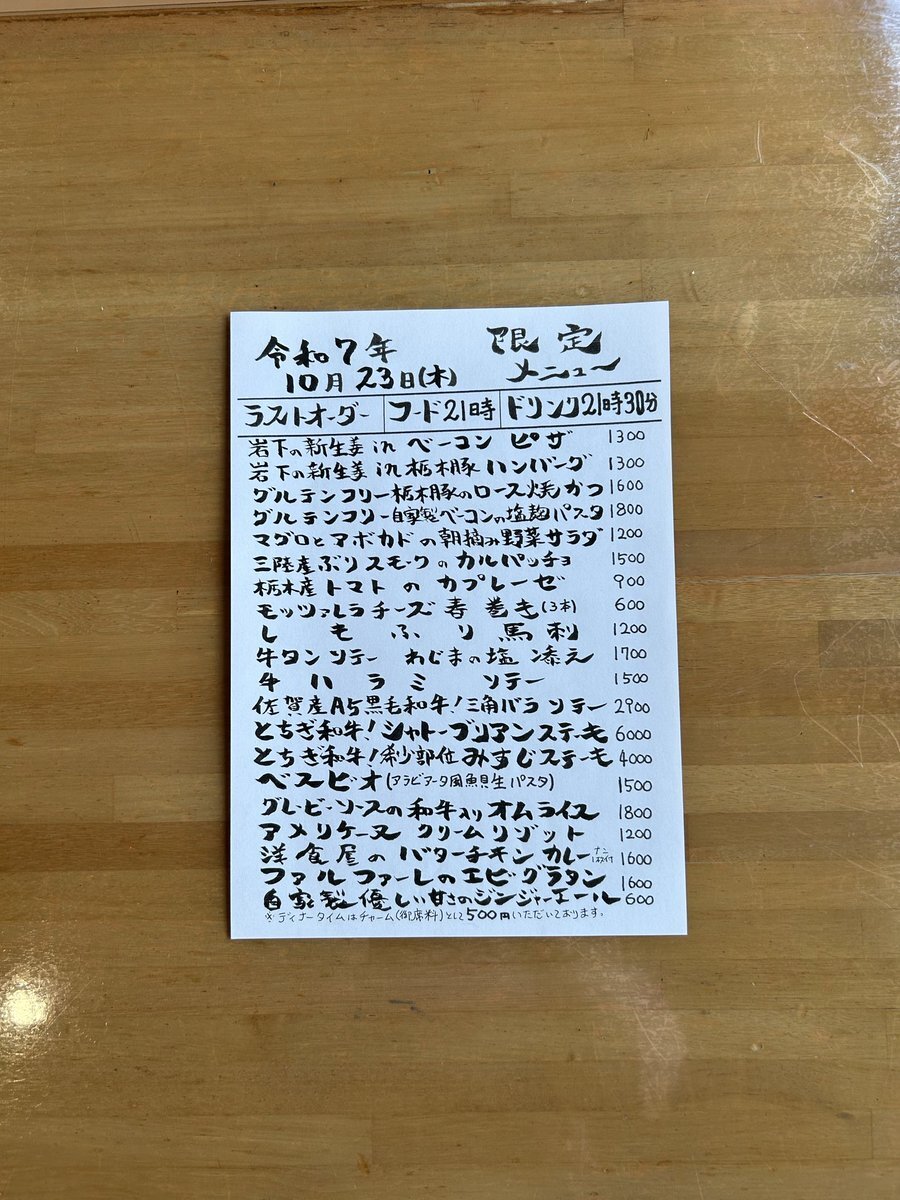 令和7年 限定
10月23日(木) メニュー
ラストオーダー フード21時 ドリンク21時30分
岩下の新生姜 in ベーコン ピザ 1300
岩下の新生姜 in 栃木豚 ハンバーグ 1300
グルテンフリー栃木豚のロース焼かつ 1600
グルテンフリー自家製ベーコンの塩麹パスタ 1800
マグロとアボカドの朝摘み野菜サラダ 1200
三陸産ぶりスモークのカルパッチョ 1500
栃木産トマトのカプレーゼ 900
モッツァレラチーズ春巻き(3本) 600
しもふり馬刺 1200
牛タンソテー わじまの塩添え 1700
牛ハラミソテー 1500
佐賀産A5黒毛和牛!三角バラソテー 2900
とちぎ和牛!シャトーブリアンステーキ 6000
とちぎ和牛!希少部位みすじステーキ 4000
ベスビオ(アラビアータ風魚貝生パスタ) 1500
グレービーソースの和牛入りオムライス 1800
アメリケーヌ クリームリゾット 1200
洋食屋のバターチキンカレー 1600
ファルファーレのエビグラタン 1600
自家製優しい甘さのジンジャーエール 600
※ディナータイムはチャーム(御席料)として500円いただいております。